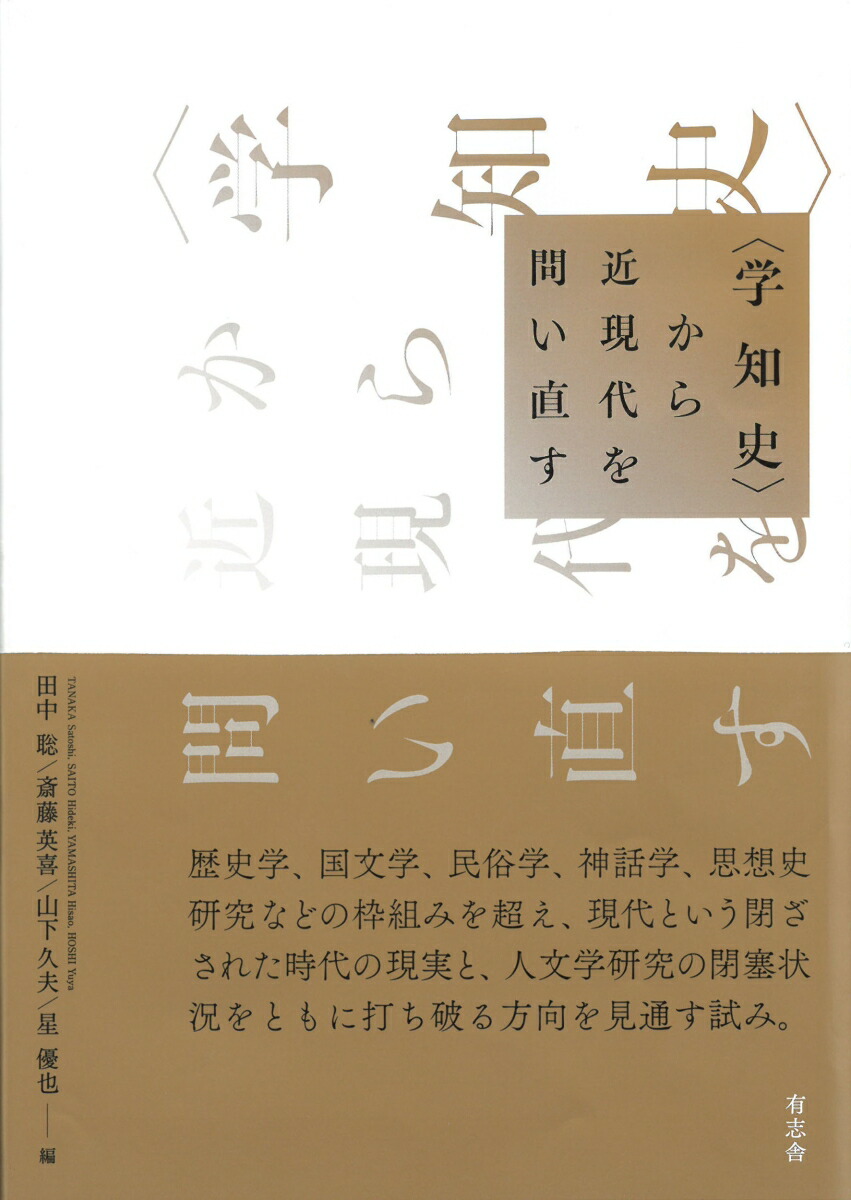 〈学知史〉
から
近現代を
問い直す
〈学知史〉
から
近現代を
問い直す
田中 聡／斎藤英喜／山下久夫／星 優也──編
TANAKA Satoshi, SAITO Hideki, YAMASHITA Hisao, HOSHI Yuya
歴史学、国文学、民俗学、神話学、思想史
研究などの枠組みを超え、現代という閉ざ
された時代の現実と、人文学研究の閉塞状
況をともに打ち破る方向を見通す試み。
有志舎